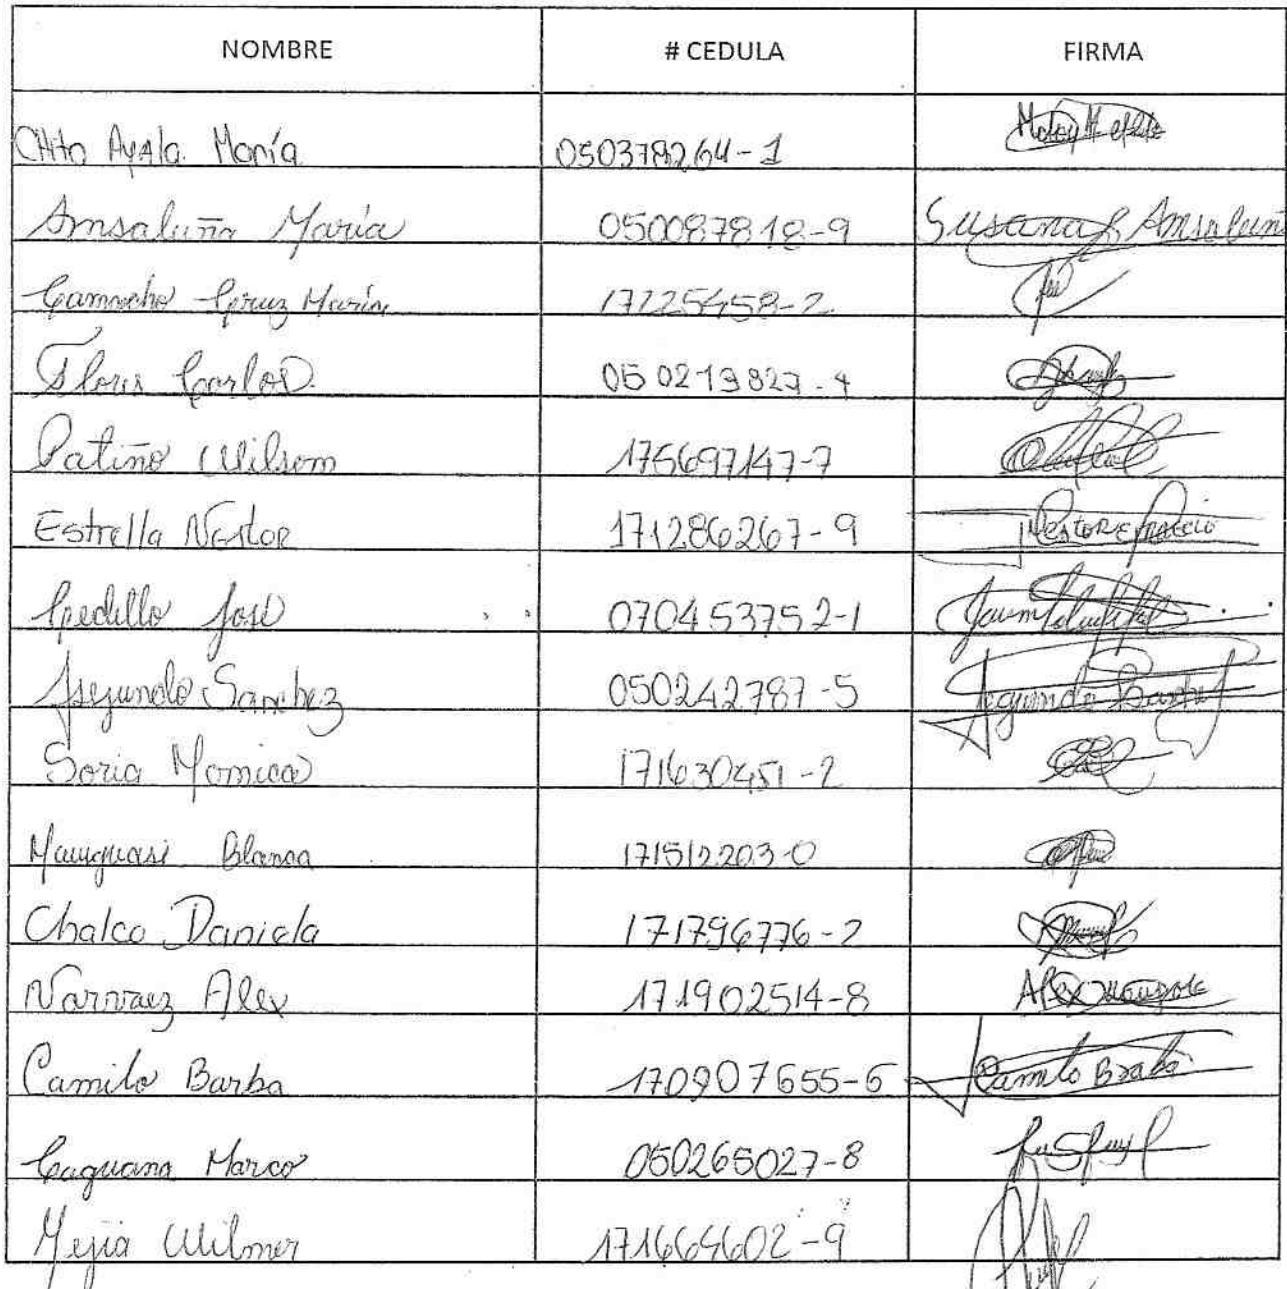 NOMBRE # CEDULA FIRMA
Chito Ayala María 050378264-1
Amsaluña María 050087818-9 Susana Amsaluñ
Camacho Cruz María 17225458-2
Flores Carlos 050213827-4
Patiño Wilsom 175697147-7
Estrella Nestor 171286267-9 Nestor E
Cedillo José 070453752-1
Segundo Sanchez 050242787-5 Segundo Sanche
Soria Monica 171630451-2
Blanca 171512203-0
Chalco Daniela 171796776-2
Narvaez Alex 171902514-8 Alex
Camilo Barba 170907655-6 Camilo Braba
Caguana Marco 050265027-8
Mejia Wilmer 171664602-9